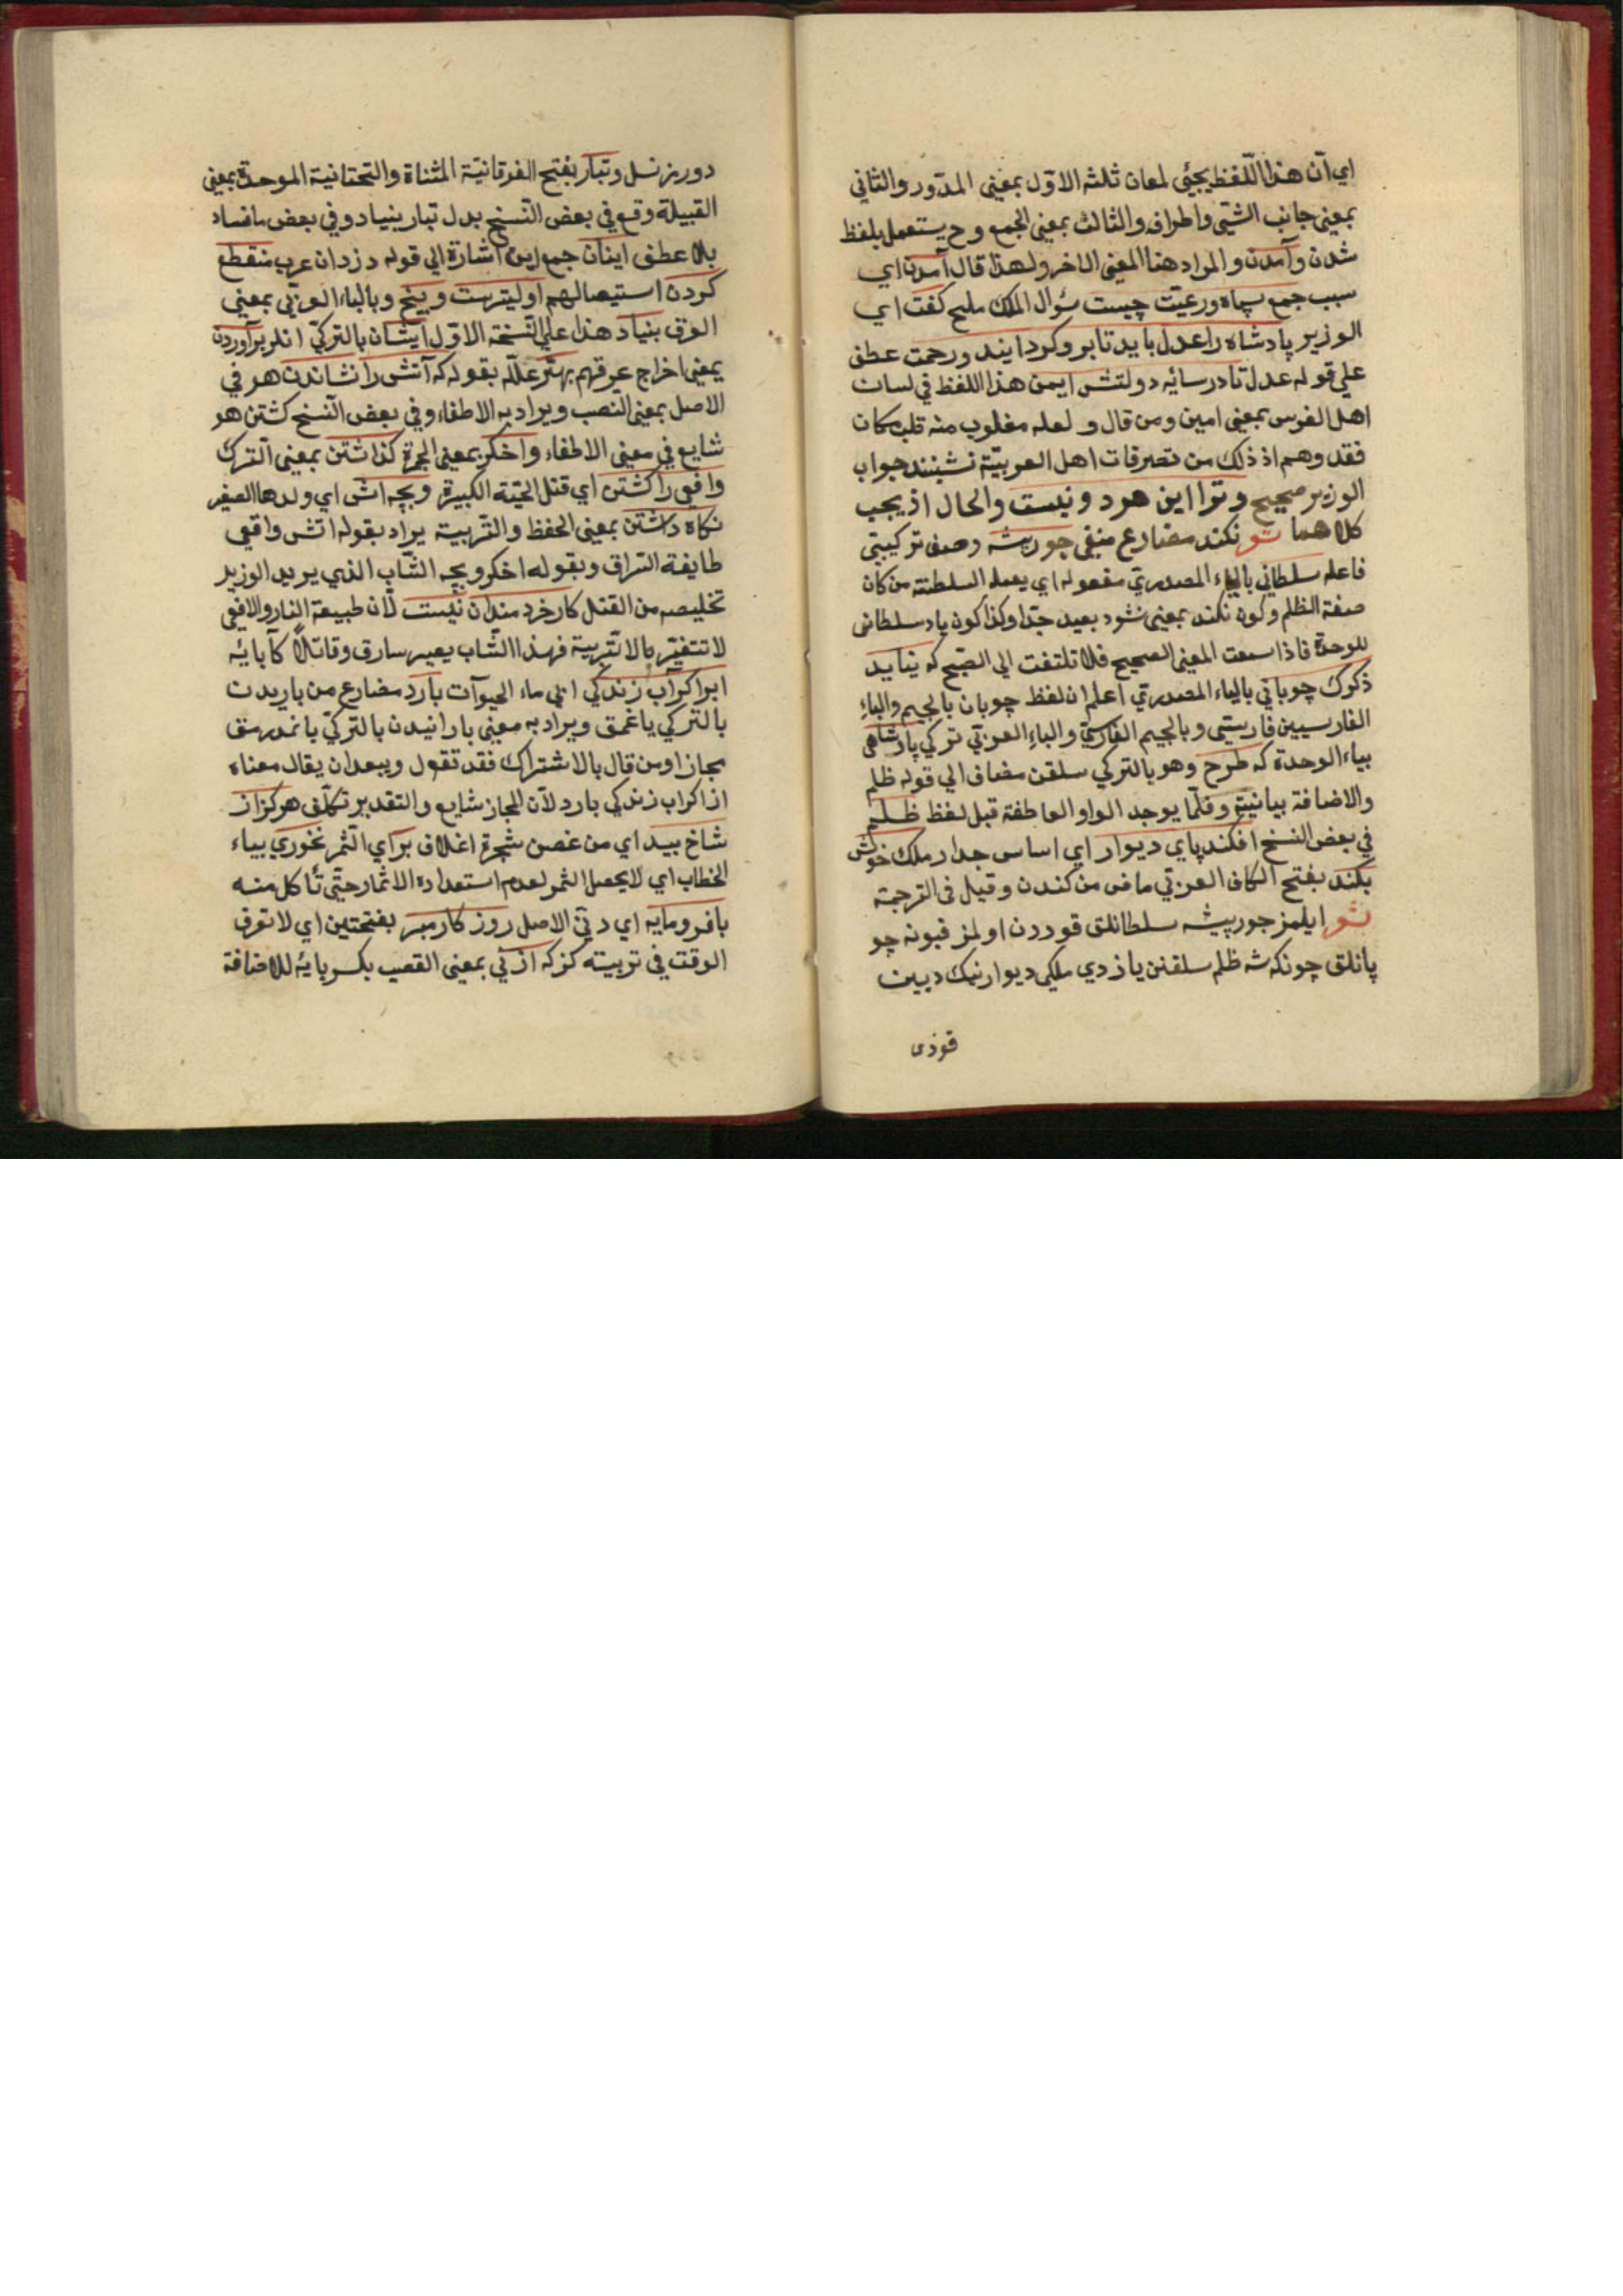 اي آن هذا اللّفظ يجئى لمعان ثلثه الاوّل بمعنى المدّور والثاني
بمعنى جانب الشئى واطرافه والثالث بمعنى الجمع وح يستعمل بلفظ
شدن وآمدن والمراد هنا المعنى الاخر ولهذا قال آمدن اي
سبب جمع سپاه ورعيّت چيست سؤال الملك مليح كفت اي
الوزير پادشاه را عدل بايد تا برو كرد ايند ورحمت عطف
على قوله عدل تا در سائه دولتش ايمن هذا اللفظ في لسان
اهل الفرس بمعنى امين ومن قال و لعله مغلوب منه قلب مكان
فقد وهم اذ ذلك من تصرفات اهل العربيّة نشينند جواب
الوزير صحيح وترا اين هردو نيست والحال اذ يجب
كلاهما شو نكند مضارع منفي جور پيشه وصف تركيبتي
فاعله سلطاني بالياء المصدرتي مفعوله اي يعمل السلطنته من كان
صفة الظلم وكون نكند بمعنى نشود بعيد جدّا وكذا كون ياء سلطاني
للوحدة فاذا سمعت المعنى الصحيح فلا تلتفت الي القبيح كه نيايد
ذكرك چوباني بالياء المصدرتي اعلم ان لفظ چوبان بالجيم والباء
الفارسيين فارسيتي وبالجيم الفارسيّ والباء العربتي تركي پادشاهى
بياء الوحدة كه طرح وهو بالتركي سلقن مضاف الي قوله ظلم
والاضافة بيانية وقلّما يوجد الواو العاطفة قبل لفظ ظلم
في بعض النسخ افكند پاي ديوار اي اساس جدار ملك خويش
بكند بفتح الكاف العربتي ماض من كندن وقيل فى الترجمة
شو ايلمز جور پيشه سلطانلق قوردن اولمز قيونه چو
پانلق چونكه شه ظلم سلقنن ياذدي ملكى ديوارنيك ديبين
قوذى
دور نزنسل وتبار بفتح الفرقانيّة المثناة والتحتانية الموحدة بمعنى
القبيلة وقع في بعض النّسخ بدل تبار بنياد وفي بعض ما فساد
بلا عطف اينان جمع اين اشارة الي قوله دزدان عرب منقطع
كردن استيصالهم اوليترست وبيخ وبالباء العربي بمعني
العرق بنياد هذا على النّسخة الاوّل ايشان بالتركيّ انلر برآوردن
بمعنى اخراج عرقهم بهتر علّله بقوله كه آتش را نشاندن هو في
الاصل بمعنى النصب ويراد به الاطفاء وفي بعض النّسخ كشتن هو
شايع في معنى الاطفاء واخكر بمعنى الجمرة كذاشتن بمعنى الترك
وافعى را كشتن اي قتل الحيّة الكبيرة وبچه اش اي ولدها الصغير
نكاه داشتن بمعنى الحفظ والتّربية يراد بقوله اتش وافعي
طايفة السّراق وبقوله اخكر وبچه الشّاب الذي يريد الوزير
تخليصه من القتل كار خردمندان نيست لان طبيعة النار والافعي
لا تتغيّر بالا تّربية فهذا الشّاب يصير سارق وقاتلًا كآبائه
ابر اكر آب زندكي اي ماء الحيوآت بارد مضارع من باريدن
بالتركي ياغمق ويراد به معنى بارانيدن بالتركيّ ياغدرمق
مجازا ومن قال بالاشتراك فقد تقول ويبعد ان يقال معناه
اذا كراب زندكي بارد لان المجاز شايع والتقدير تكلّف هركز از
شاخ بيد اي من غصن شجرة اغلاف براي الثمر نخوري بياء
الخطاب اي لا يحصل الثمر لعدم استعداده الاثمار حتّى تأكل منه
بافرومايه اي دنيّ الاصل روزكار مبر بفتحتين اي لا تعرف
الوقت في تربيته كزكه از ني بمعنى القصب بكسر يائه للاضافة